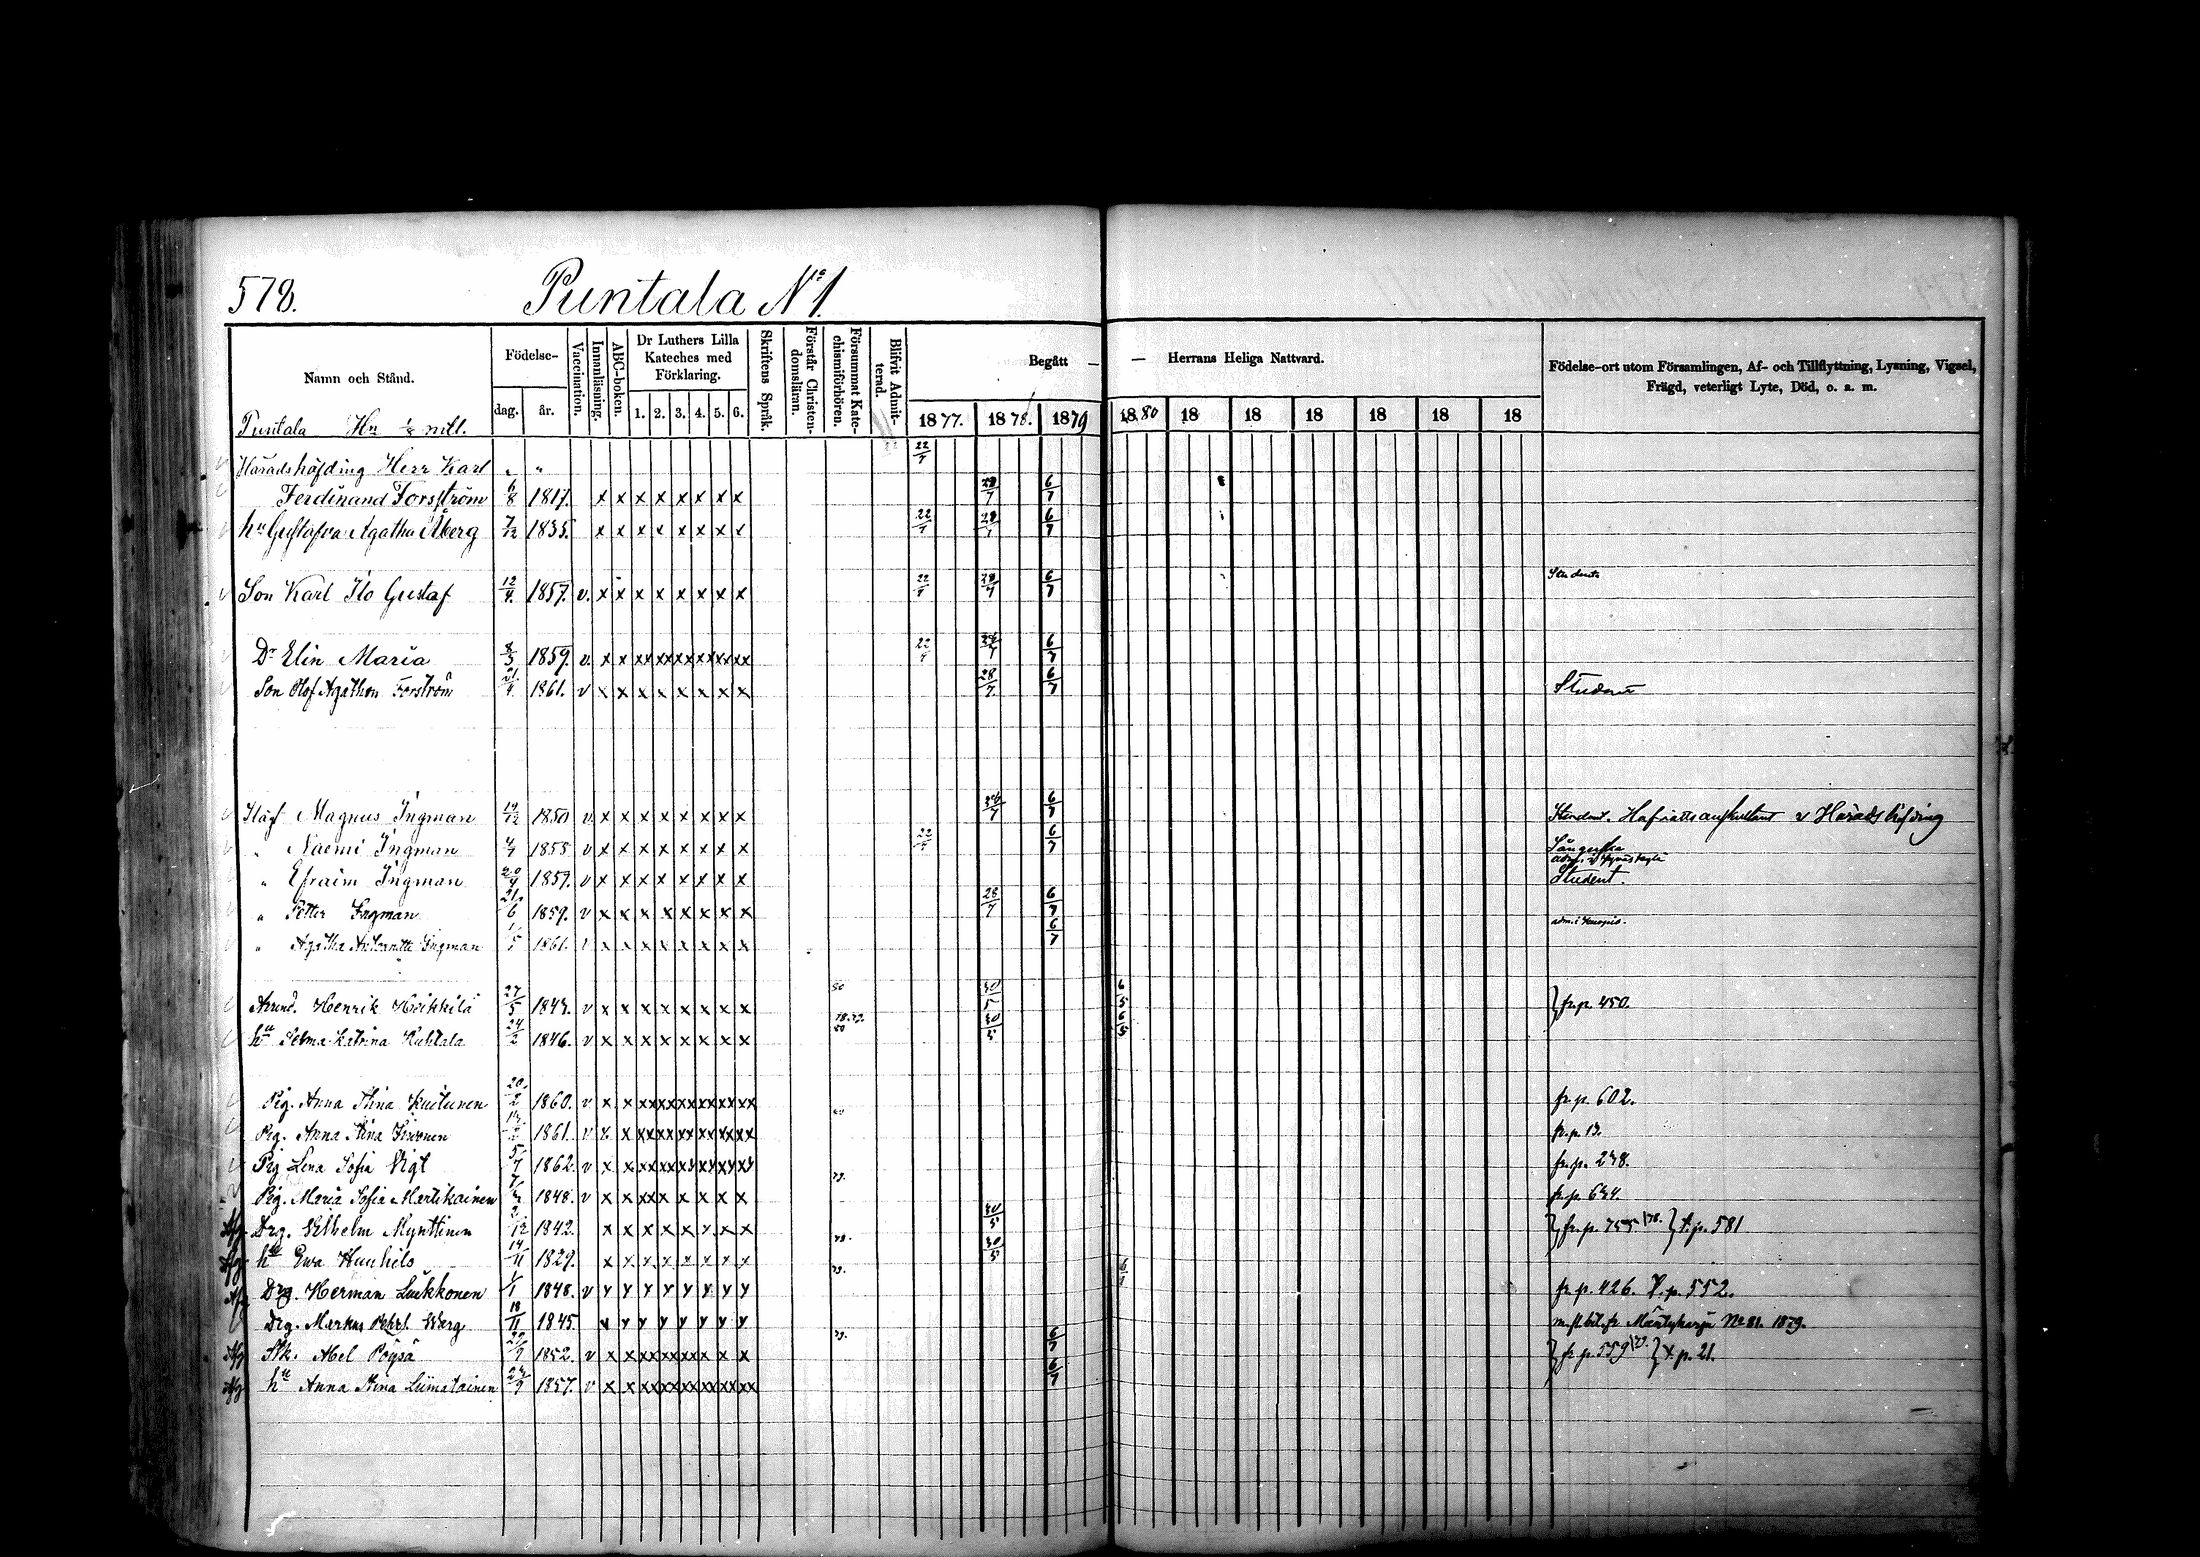 578.
Puntala No 1.
Namn och Stånd.
Födelse-
dag. år.
Vaccination.
Innanläsning.
ABC-boken.
Dr Luthers Lilla Kateches med Förklaring.
1. 2. 3. 4. 5. 6.
Skriftens Språk.
Förstår Christendomsläran.
Försummat Katechismiförhören.
Blifvit Admitterad.
Begått — — Herrans Heliga Nattvard.
1877. 1878. 1879 1880 18 18 18 18 18 18
Födelse-ort utom Församlingen, Af- och Tillflyttning, Lysning, Vigsel, Frägd, veterligt Lyte, Död, o. a. m.
Puntala
Häradshöfding Herr Karl 22/7
Ferdinand Forsström 6/8 1817. x x x x x x x x 28/7 6/7
hu Gustafva Agatha Åberg 7/12 1835. x x x x x x x x 22/7 28/7 6/7
Son Karl Ilo Gustaf 12/4 1857. v. x x x x x x x x 22/7 28/7 6/7 Student
Dr Elin Maria 8/3 1859. v. x x xx xx xx xx xx xx 22/7 6/7
Son Olof Agathon Forström 21/4 1861. v x x x x x x x x 28/7 6/7 Student
Magnus Ingman 1850 v x x x x x x x x 6/7 Student. Hofrätts auskultant v Häradshöfding
" Naemi Ingman 1855 v x x x x x x x x 22/7 6/7
" Efraim Ingman 20/4 1857. v x x x x x x x x Student.
" Petter Ingman 21/6 1859. v x x x x x x x x 28/7 6/7 adm. i Kuopio.
" Agatha Ingman 1861. v x x x x x x x x 6/7
Henrik Heikkilä 27/5 1843. v x x x x x x x x 30/5 6/5 } fr. p. 450.
hu Selma Katrina 24/2 1846. v x x x x x x x x 30/5 6/5
Pig. Anna Stina Kuitunen 20/2 1860. v x x xx xx xx xx xx xx fr. p. 602.
Pig. Anna Stina 1861. v x x xx xx xx xx xx xx fr. p. 13.
Pig Lena Sofia Vigt 5/7 1862. v x x xx xx xx xx xx xx fr. p. 238.
Pig. Maria Sofia Martikainen 1848. v x x xx x x x x x fr. p. 634.
Drg. Vilhelm Mynttinen 2/12 1842. x x x x x x x x 30/5 } fr. p. 755 } t. p. 581
hu Ewa 14/11 1829. x x x x x x x x 30/5
Drg. Herman Luukkonen 1/1 1848. v x x x x x x x x fr. p. 426. t. p. 552.
Drg. Markus 18/11 1845. x x x x x x x x m. fl. bet. fr. Mäntyharju No 81. 1879.
Abel Pöysä 1852. v x x xx xx xx x x x 6/7 } fr. p. 559 } t. p. 21.
hu Anna Stina Liimatainen 1857. v x x xx xx xx xx xx xx 6/7